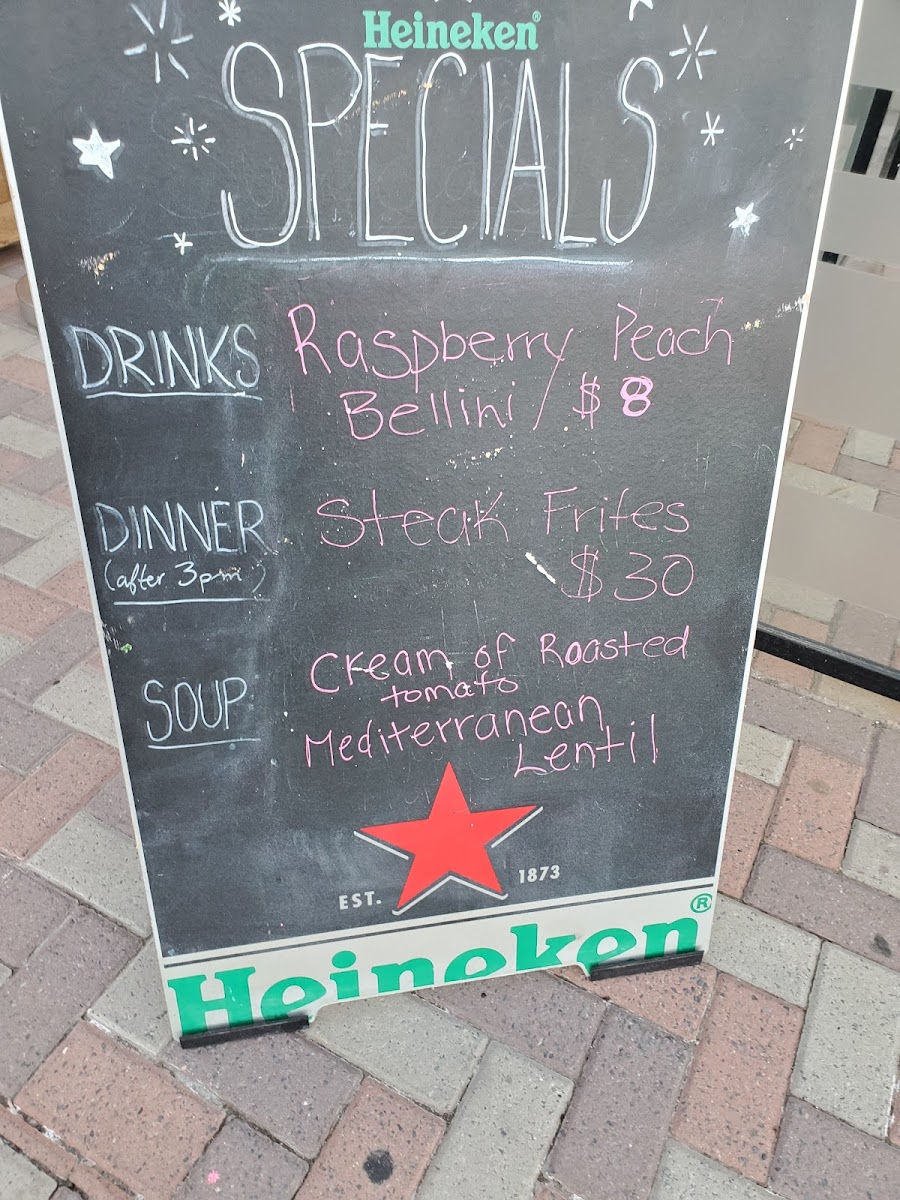 Heineken®
SPECIALS
DRINKS
Raspberry Peach
Bellini / $8
DINNER
(after 3pm)
Steak Frites
$30
SOUP
Cream of Roasted
tomato
Mediterranean
Lentil
EST. 1873
Heineken®